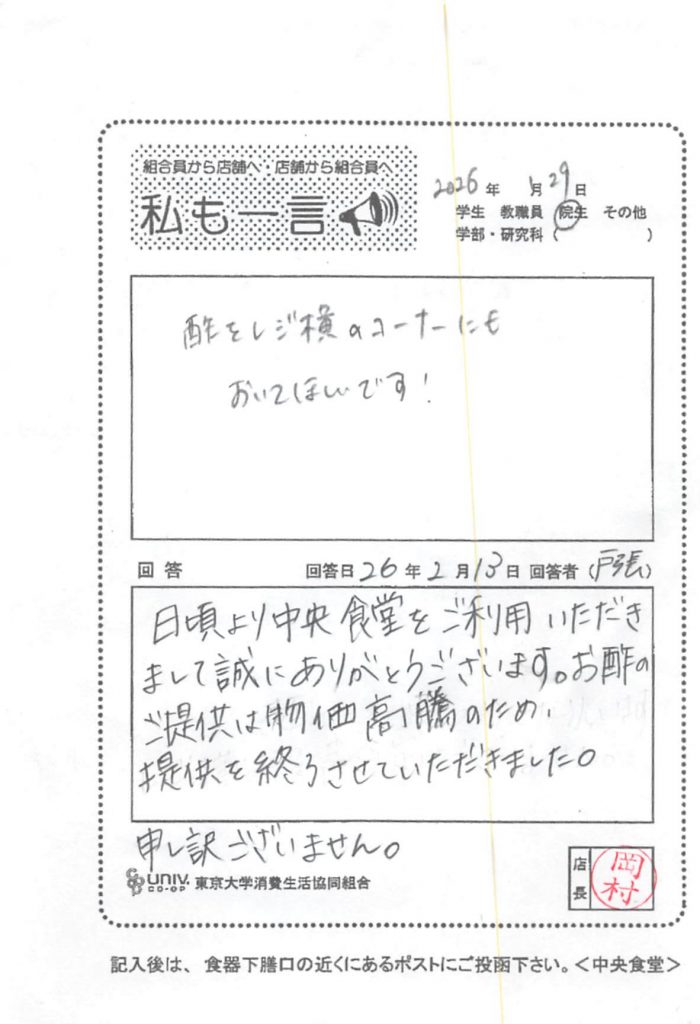 組合員から店舗へ・店舗から組合員へ
私も一言
2026年 1月29日
学生 教職員 院生 その他
学部・研究科( )
酢をレジ横のコーナーにも
おいてほしいです!
回答 回答日26年2月13日 回答者(戸張)
日頃より中央食堂をご利用いただき
まして誠にありがとうございます。お酢の
ご提供は物価高騰のため
提供を終了させていただきました。
申し訳ございません。
UNIV.
CO-OP
東京大学消費生活協同組合
店長
岡村
記入後は、食器下膳口の近くにあるポストにご投函下さい。<中央食堂>